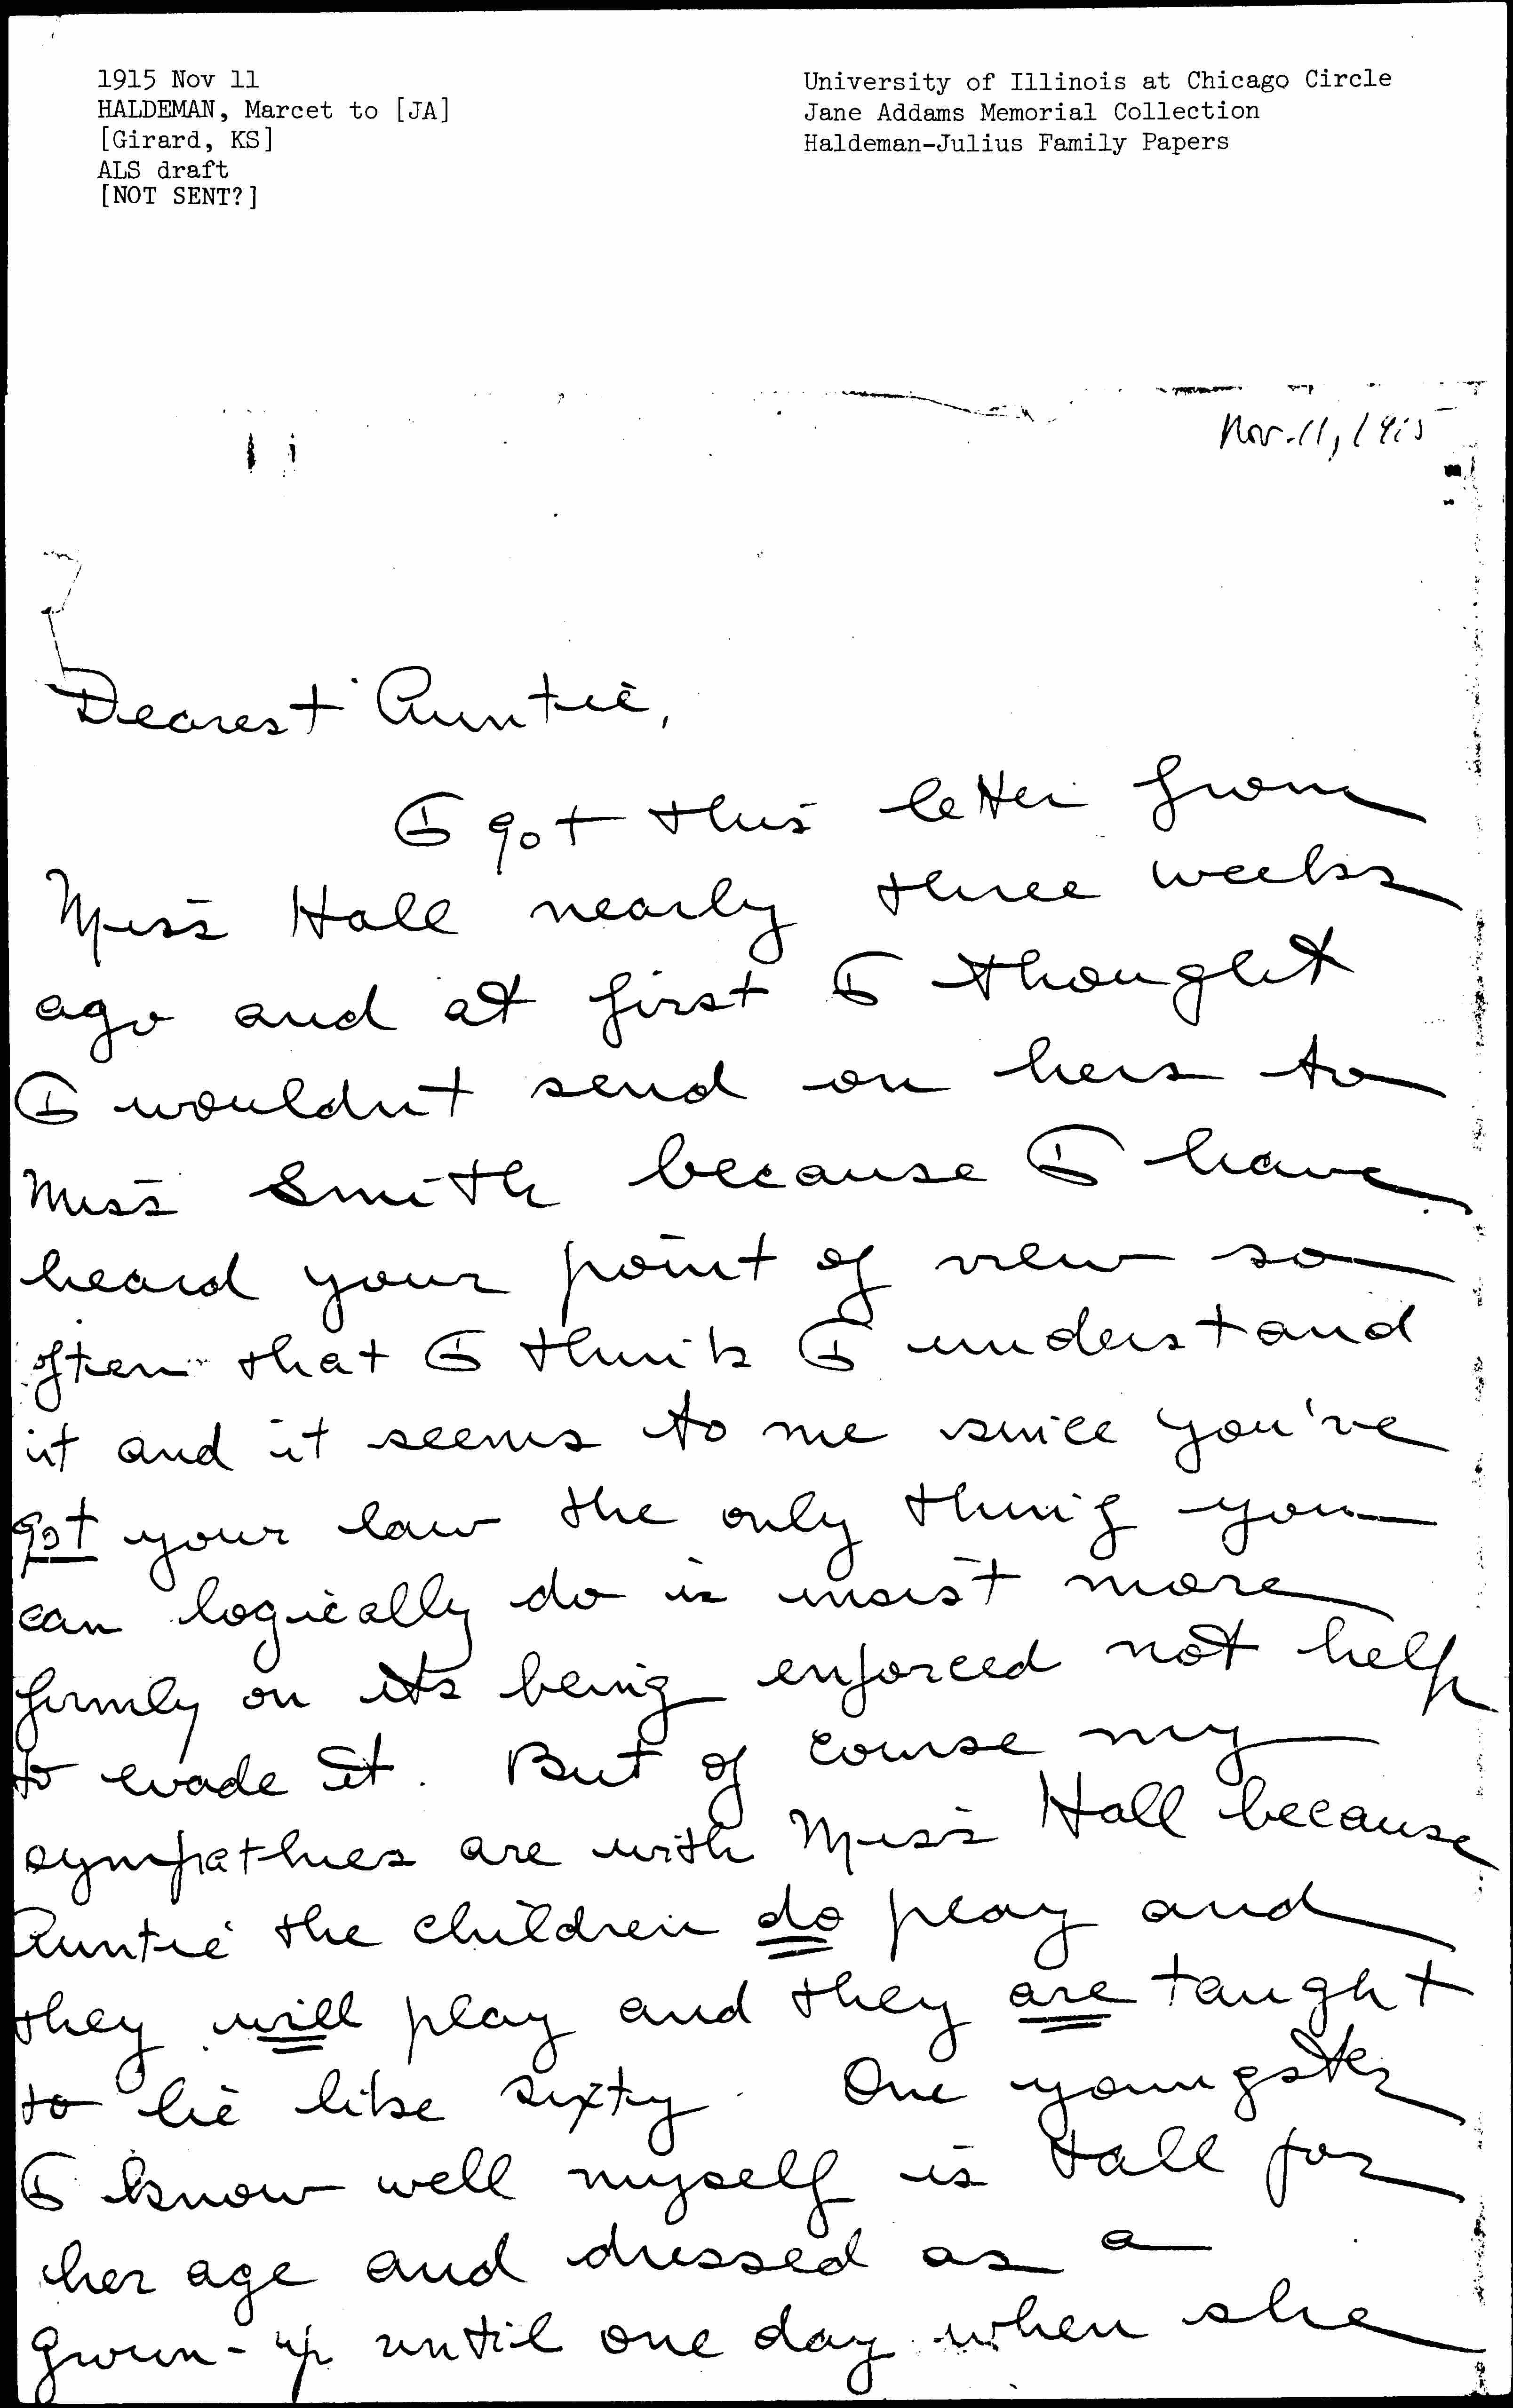 1915 Nov 11
HALDEMAN, Marcet to [JA]
[Girard, KS]
ALS draft
[NOT SENT?]
University of Illinois at Chicago Circle
Jane Addams Memorial Collection
Haldeman-Julius Family Papers
Nov. 11, 1915
Dearest Auntie,
I got this letter from
Miss Hall nearly three weeks
ago and at first I thought
I wouldnt send on hers to
Miss Smith because I have
heard your point of view so
often that I think I understand
it and it seems to me since you've
got your law the only thing you
can logically do is insist more
firmly on its being enforced not help
to evade it. But of course my
sympathies are with Miss Hall because
Auntie the children do play and
they will play and they are taught
to lie like sixty. One youngster
I know well myself is tall for
her age and dressed as a
grown-up until one day when she